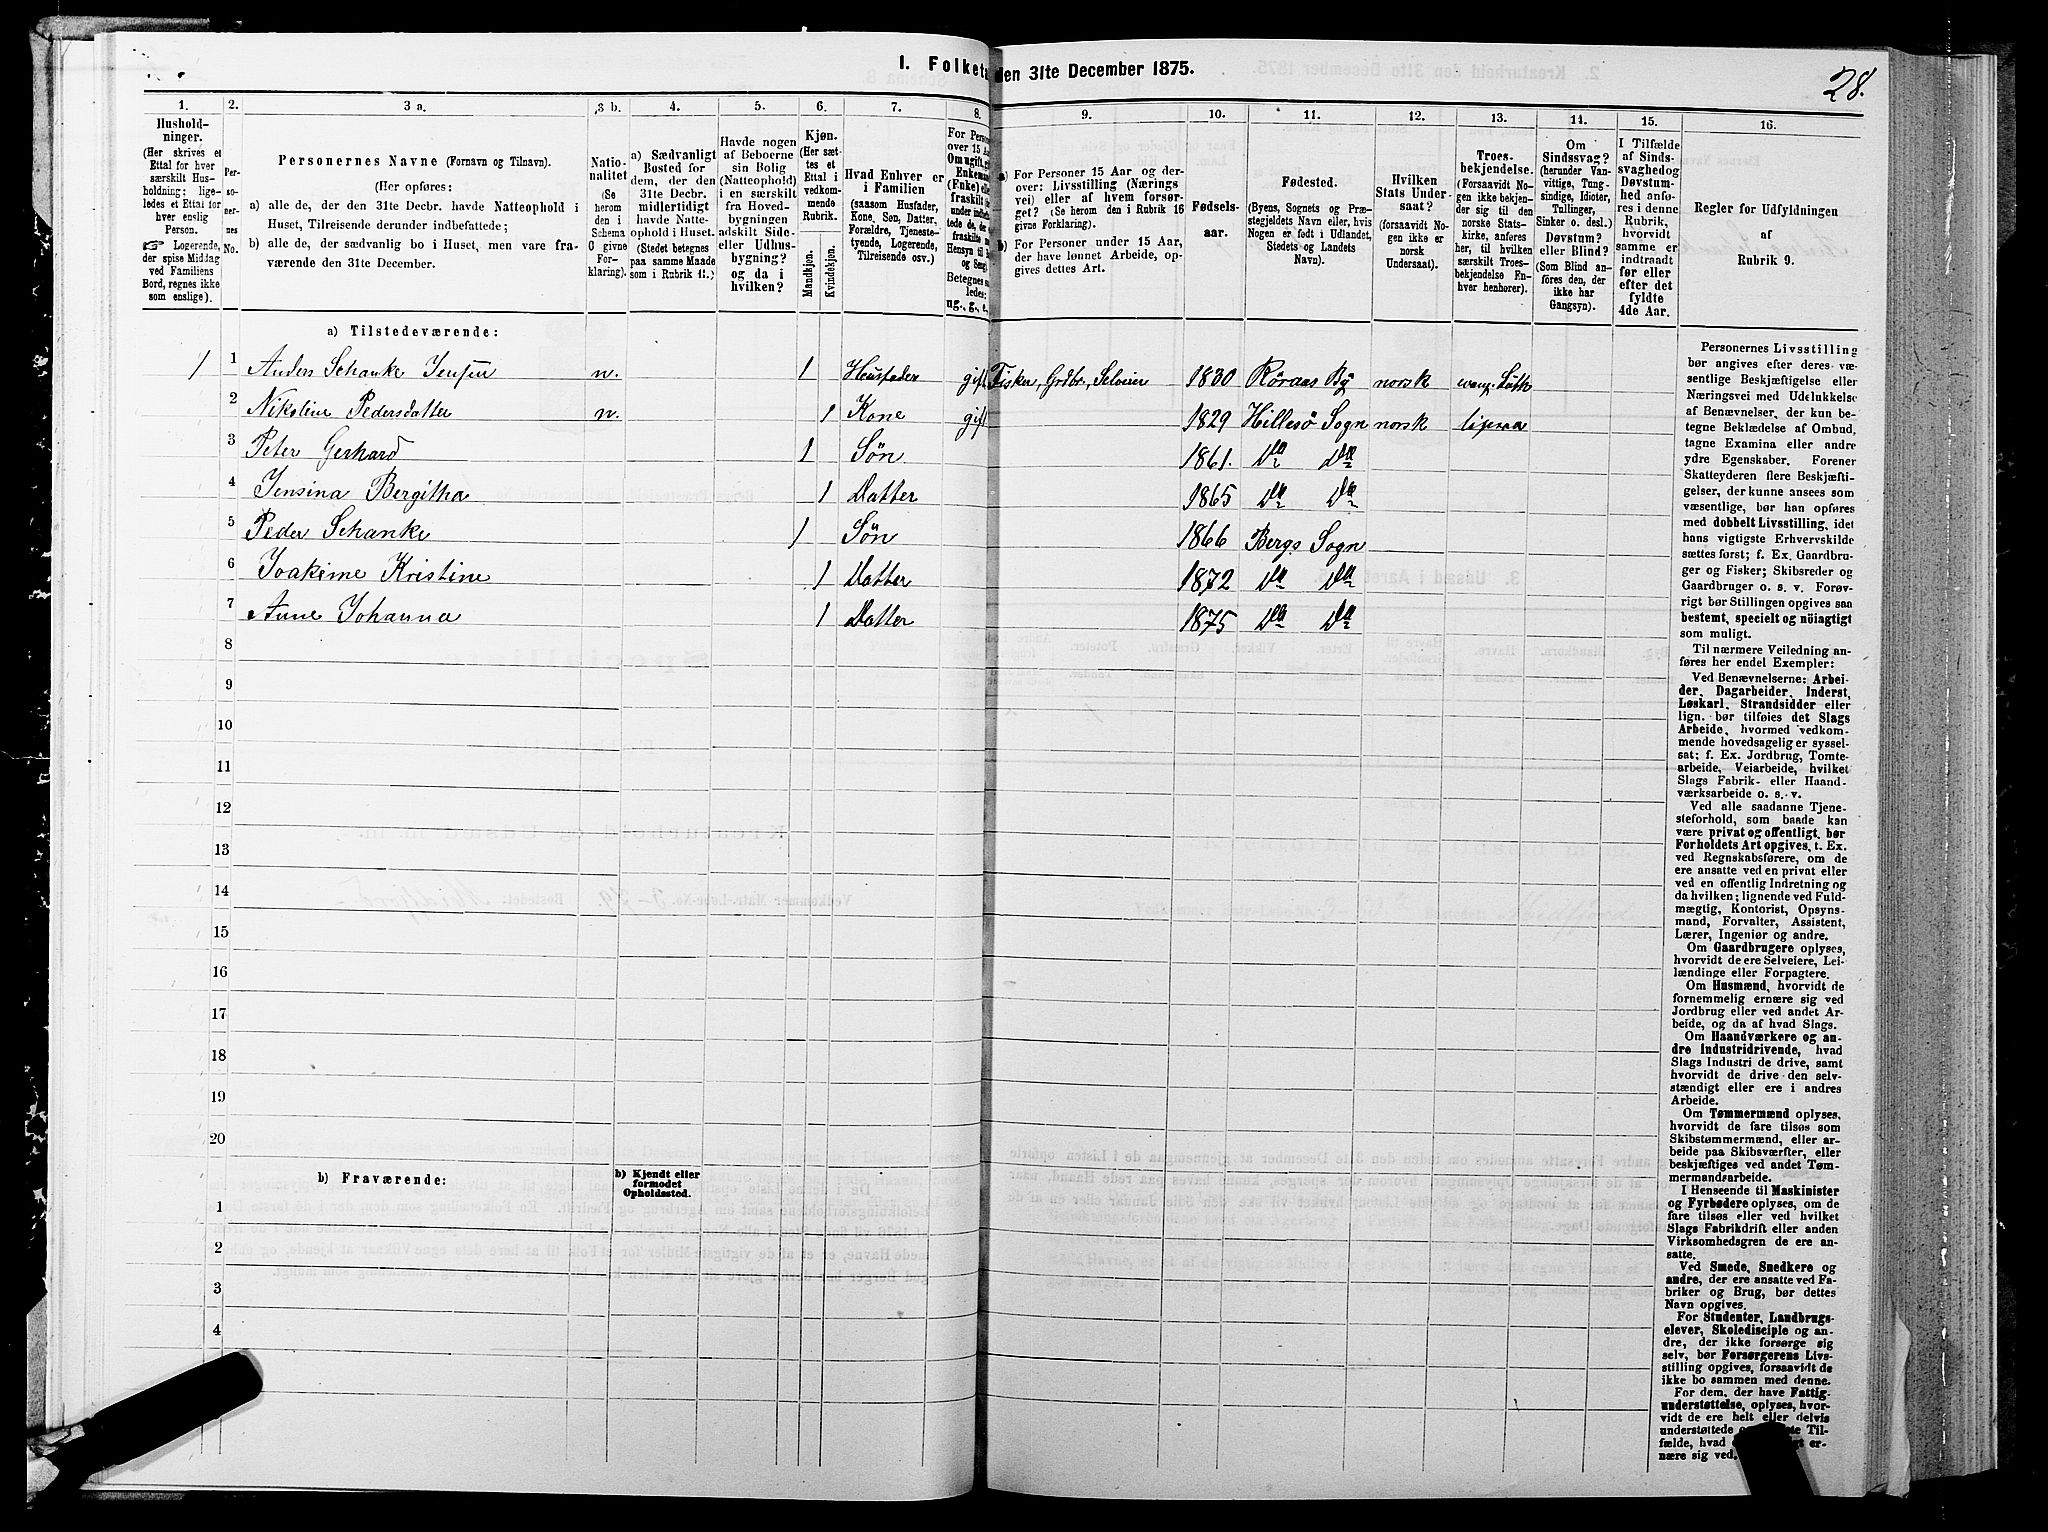 28.
I. Folketæ
den 31te December 1875.
1.
2.
3 a.
3 b.
4.
5.
6.
7.
8.
9.
10.
11.
12.
13.
14.
15.
16.
Hushold-
ninger.
(Her skrives et
Ettal for hver
særskilt Hus-
holdning; lige-
ledes et Ettal for
hver enslig
Person.
☞ Logerende,
der spise Middag
ved Familiens
Bord, regnes ikke
som enslige).
Per-
so-
ner-
nes
No.
Personernes Navne (Fornavn og Tilnavn).
(Her opføres:
a) alle de, der den 31te Decbr. havde Natteophold i
Huset, Tilreisende derunder indbefattede;
b) alle de, der sædvanlig bo i Huset, men vare fra-
værende den 31te December.
Natio-
nalitet
(Se
herom
den i
Schema
C givne
For-
klaring).
a) Sædvanligt
Bosted for
dem, der den
31te Decbr.
midlertidigt
havde Natte-
ophold i Huset.
(Stedet betegnes
paa samme Maade
som i Rubrik 11.)
Havde nogen
af Beboerne
sin Bolig
(Natteophold)
i en særskilt
fra Hoved-
bygningen
adskilt Side-
eller Udhus-
bygning?
og da i
hvilken?
Kjøn.
(Her sæt-
tes et
Ettal i
vedkom-
mende
Rubrik.
Mandkjøn.
Kvindekjøn.
Hvad Enhver er
i Familien
(saasom Husfader,
Kone, Søn, Datter,
Forældre, Tjeneste-
tyende, Logerende,
Tilreisende osv.)
For Person
over 15 Aar
Om ugift, gi
Enkeman
(Enke) elle
fraskilt
ng., g., e.,
a) For Personer 15 Aar og der-
over: Livsstilling (Nærings
vei) eller af hvem forsør-
get? (Se herom den i Rubrik 16
givne Forklaring).
b) For Personer under 15 Aar,
der have lønnet Arbeide, op-
gives dettes Art.
Fødsels-
aar.
Fødested.
(Byens, Sognets og Præ-
stegjeldets Navn eller, hvis
Nogen er født i Udlandet,
Stedets og Landets
Navn).
Hvilken
Stats Under-
saat?
(forsaavidt No-
gen ikke er
norsk
Undersaat).
Troes-
bekjendelse.
(Forsaavidt No-
gen ikke bekjen-
der sig til den
norske Stats-
kirke, anføres
her, til hvilken
særskilt Troes-
bekjendelse En-
hver henhører).
Om
Sindssvag?
(herunder Van-
vittige, Tung-
sindige, Idioter,
Tullinger,
Sinker o. desl.)
Døvstum?
eller Blind?
(Som Blind an-
føres den, der
ikke har
Gangsyn).
I Tilfælde
af Sinds-
svaghed og
Døvstum-
hed anfø-
res i denne
Rubrik,
hvorvidt
samme er
indtraadt
før eller
efter det
fyldte
4de Aar.
Regler for Udfyldningen
af
Rubrik 9.
a) Tilstedeværende:
1 1 Anders Schanke Jensen n. 1 Husfader gift Fisker, Grdbr, Selveier 1830 Röraas By norsk evang. Luth
2 Nikoline Pedersdatter n. 1 Kone gift 1829 Hillesö Sogn norsk ligesaa
3 Peter Gerhard 1 Søn 1861. Do Do
4 Jensina Bergitha 1 Datter 1865 Do Do
5 Peder Schanke 1 Søn 1866 Bergs Sogn
6 Joakime Kristine 1 Datter 1872 Do Do
7 Anne Johanna 1 Datter 1875 Do Do
8
9
10
11
12
13
14
15
16
17
18
19
20
b) Fraværende:
b) Kjendt eller
formodet
Opholdssted.
1
2
3
4
Personernes Livsstilling
bør angives efter deres væ-
sentlige Beskjæftigelse eller
Næringsvei med Udelukkelse
af Benævnelser, der kun be-
tegne Beklædelse af Ombud,
tagne Examina eller andre
ydre Egenskaber. Forener
Skatteyderen flere Beskjæfti-
gelser, der kunne ansees som
væsentlige, bør han opføres
med dobbelt Livsstilling, idet
hans vigtigste Erhvervskilde
sættes først; f. Ex. Gaardbru-
ger og Fisker; Skibsreder og
Gaardbruger o. s. v. Forøv-
rigt bør Stillingen opgives saa
bestemt, specielt og nøiagtigt
som muligt.
Til nærmere Veiledning an-
føres her endel Exempler:
Ved Benævnelserne: Arbei-
der, Dagarbeider, Inderst,
Løskarl, Strandsidder eller
lign. bør tilføies det Slags
Arbeide, hvormed vedkom-
mende hovedsagelig er syssel-
sat; f. Ex. Jordbrug, Tomte-
arbeide, Veiarbeide, hvilket
Slags Fabrik- eller Haand-
værksarbeide o. s. v.
Ved alle saadanne Tjene-
steforhold, som baade kan
være privat og offentligt, bør
Forholdets Art opgives, t. Ex.
ved Regnskabsførere, om de
ere ansatte ved en privat eller
ved en offentlig Indretning og
da hvilken; lignende ved Fuld-
mægtig, Kontorist, Opsyns-
mand, Forvalter, Assistent,
Lærer, Ingeniør og andre.
Om Gaardbrugere oplyses,
hvorvidt de ere Selveiere, Lei-
lændinge eller Forpagtere.
Om Husmænd, hvorvidt de
fornemmelig ernære sig ved
Jordbrug eller ved andet Ar-
beide, og da af hvad Slags.
Om Haandværkere og an-
dre Industridrivende, hvad
Slags Industri de drive, samt
hvorvidt de drive den selv-
stændigt eller ere i andres
Arbeide.
Om Tømmermænd oplyses,
hvorvidt de fare tilsøs som
Skibstømmermænd, eller ar-
beide paa Skibsværfter, eller
beskjæftiges ved andet Tøm-
mermandsarbeide.
I Henseende til Maskinister
og Fyrbødere oplyses, om de
fare tilsøs eller ved hvilket
Slags Fabrikdrift eller anden
Virksomhedsgren de ere an-
satte.
Ved Smede, Snedkere og
andre, der ere ansatte ved Fa-
briker og Brug, bør dettes
Navn opgives.
For Studenter, Landbrugs-
elever, Skoledisciple og an-
dre, der ikke forsørge sig
selv, bør Forsørgerens Livs-
stilling opgives, forsaavidt de
ikke bo sammen med denne.
For dem, der have Fattig-
understøttelse, oplyses, hvor-
vidt de ere helt eller delvis
understøttede
fælde, hvad
nære sig ved.